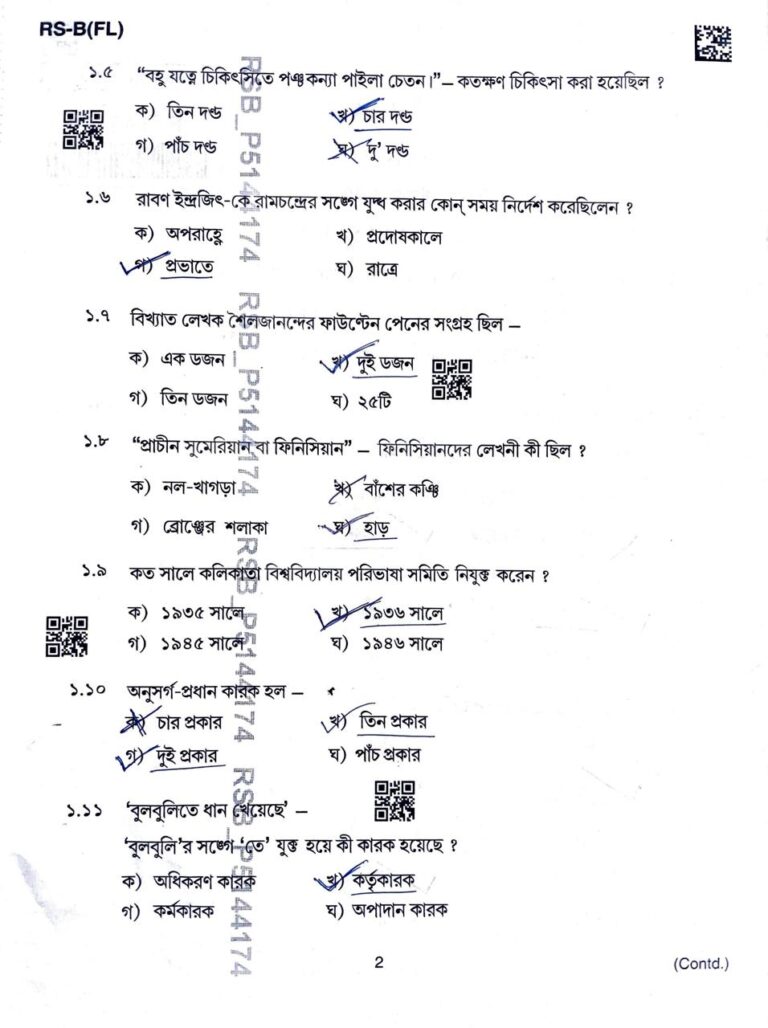 RS-B(FL)
১.৫ "বহু যত্নে চিকিৎসিতে পঞ্চকন্যা পাইলা চেতন।"– কতক্ষণ চিকিৎসা করা হয়েছিল ?
ক) তিন দণ্ড খ) চার দণ্ড
গ) পাঁচ দণ্ড ঘ) দু' দণ্ড
১.৬ রাবণ ইন্দ্রজিৎ-কে রামচন্দ্রের সঙ্গে যুদ্ধ করার কোন্ সময় নির্দেশ করেছিলেন ?
ক) অপরাহ্ণে খ) প্রদোষকালে
গ) প্রভাতে ঘ) রাত্রে
১.৭ বিখ্যাত লেখক শৈলজানন্দের ফাউন্টেন পেনের সংগ্রহ ছিল –
ক) এক ডজন খ) দুই ডজন
গ) তিন ডজন ঘ) ২৫টি
১.৮ "প্রাচীন সুমেরিয়ান বা ফিনিসিয়ান" – ফিনিসিয়ানদের লেখনী কী ছিল ?
ক) নল-খাগড়া খ) বাঁশের কঞ্চি
গ) ব্রোঞ্জের শলাকা ঘ) হাড়
১.৯ কত সালে কলিকাতা বিশ্ববিদ্যালয় পরিভাষা সমিতি নিযুক্ত করেন ?
ক) ১৯৩৫ সালে খ) ১৯৩৬ সালে
গ) ১৯৪৫ সালে ঘ) ১৯৪৬ সালে
১.১০ অনুসর্গ-প্রধান কারক হল –
ক) চার প্রকার খ) তিন প্রকার
গ) দুই প্রকার ঘ) পাঁচ প্রকার
১.১১ 'বুলবুলিতে ধান খেয়েছে' –
'বুলবুলি'র সঙ্গে 'তে' যুক্ত হয়ে কী কারক হয়েছে ?
ক) অধিকরণ কারক খ) কর্তৃকারক
গ) কর্মকারক ঘ) অপাদান কারক
2
(Contd.)
RSB_P5144174 RSB_P5144174 RSB_P5144174 RSB_P5144174